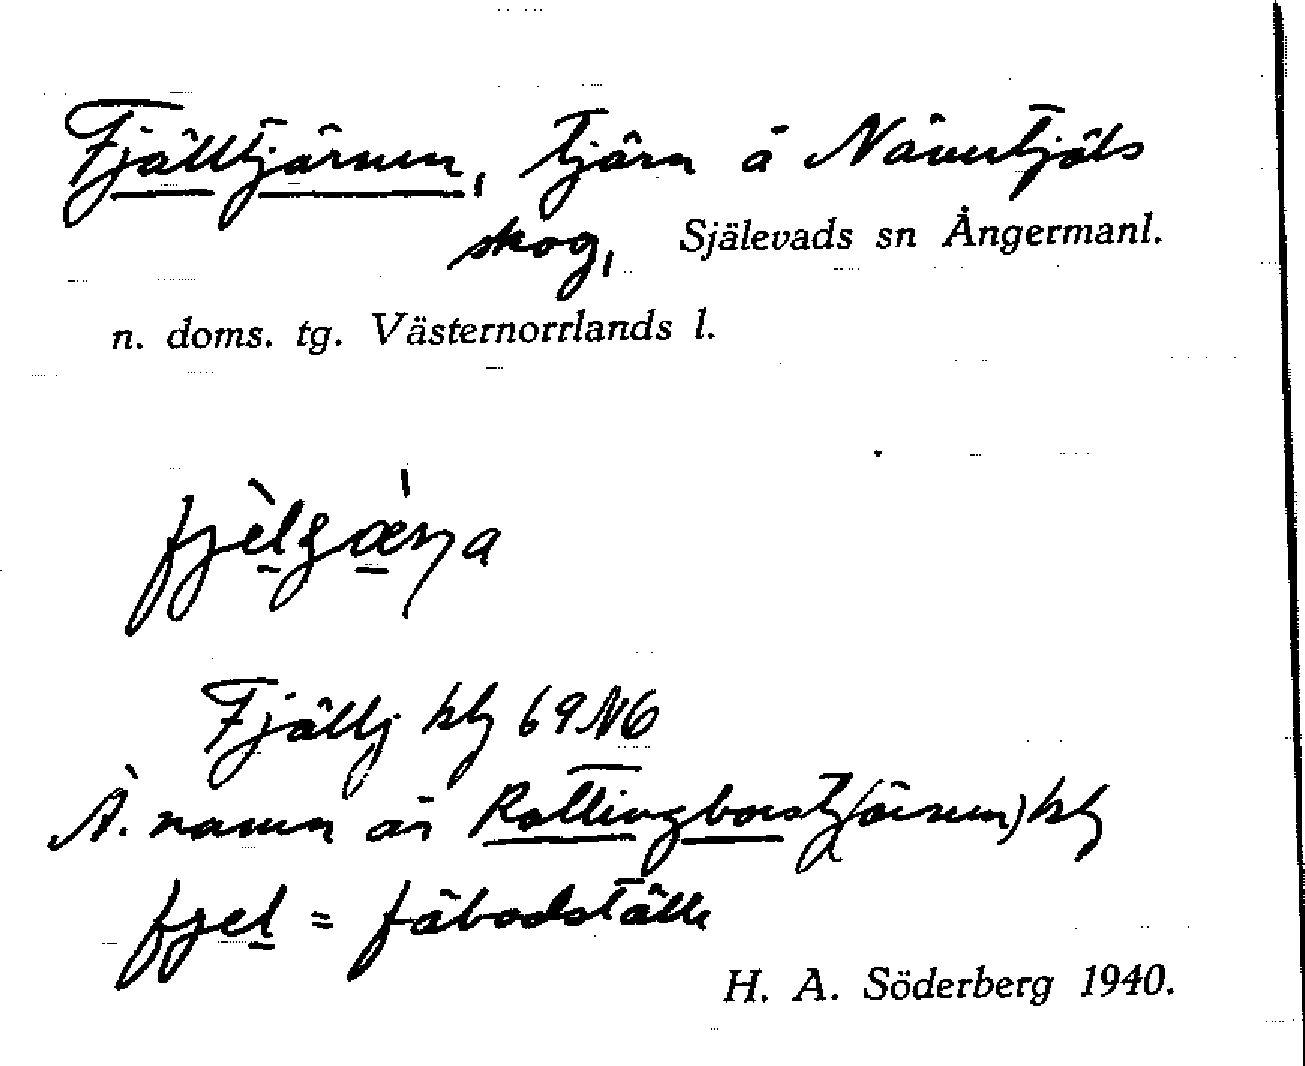 Fjälltjärnen, tjärn å Näverfjäls
skog, Själevads sn Ångermanl.
n. doms. tg. Västernorrlands l.
Fjälltj kbl 69 N6
Ä. namn är Rottingborstj(ärnen) kbl
fjel = fäbodställe
H. A. Söderberg 1940.